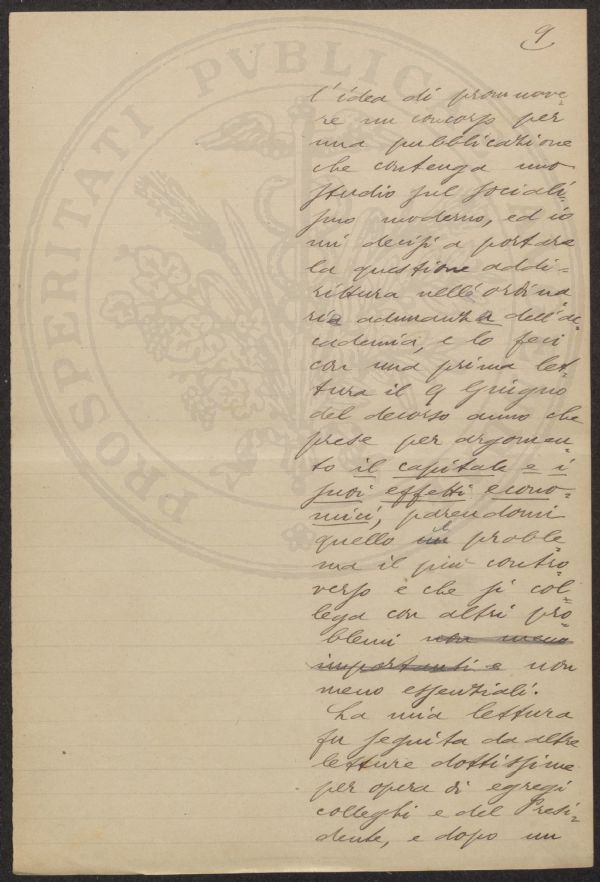 9
l'idea di promuove=
re un concorso per
una pubblicazione
che contenga uno
studio sul sociali=
smo moderno, ed io
mi decisi a portare
la questione addi=
rittura nell'ordina
ria adunanza dell'ac
cademia, e lo feci
con una prima let=
tura il 9 Giugno
del decorso anno che
prese per argomen=
to il capitale e i
suoi effetti econo=
mici, parendomi
quello il proble=
ma il più contro=
verso e che si col=
lega con altri pro=
blemi non meno
importanti e non
meno essenziali.
La mia lettura
fu seguita da altre
letture dottissime
per opera di egregi
colleghi e del Presi=
dente, e dopo un
PROSPERITATI PVBLICAE